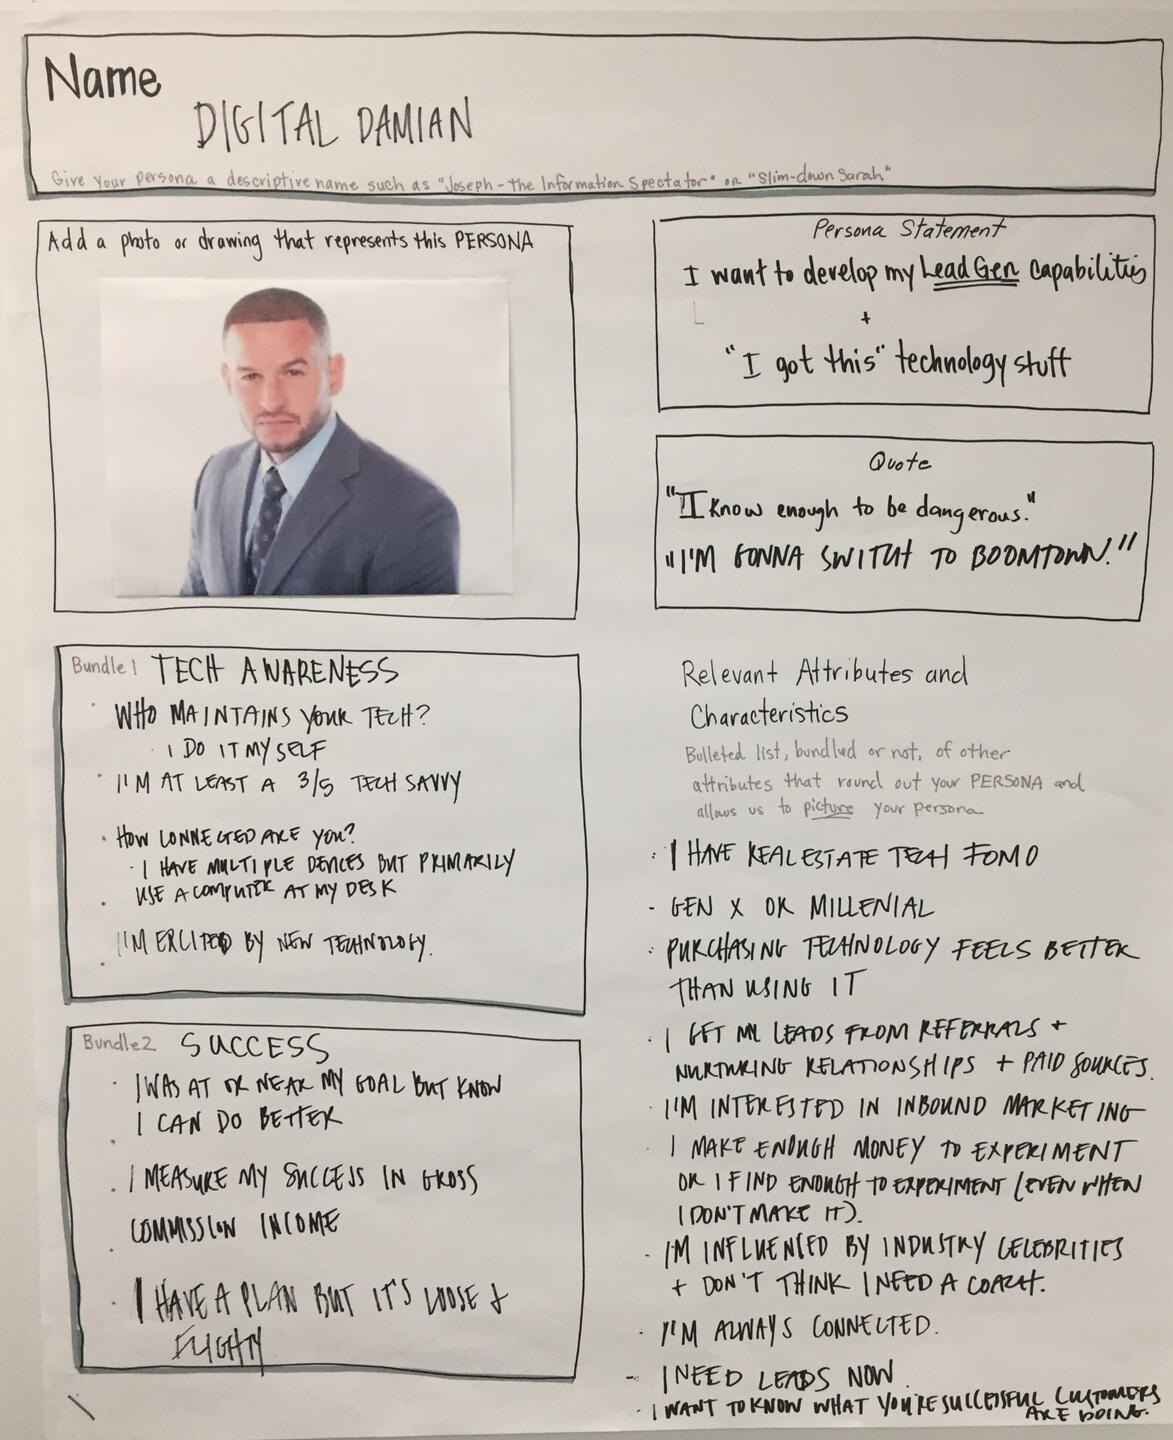 Name
DIGITAL DAMIAN
Give your persona a descriptive name such as "Joseph - the Information Spectator" or "Slim-down Sarah"
Add a photo or drawing that represents this PERSONA
Persona Statement
I want to develop my Lead Gen capabilities
+
"I got this" technology stuff
Quote
"I know enough to be dangerous."
"I'M GONNA SWITCH TO BOOMTOWN!"
Bundle 1 TECH AWARENESS
WHO MAINTAINS YOUR TECH?
· I DO IT MYSELF
· I'M AT LEAST A 3/5 TECH SAVVY
· HOW CONNECTED ARE YOU?
· I HAVE MULTIPLE DEVICES BUT PRIMARILY
USE A COMPUTER AT MY DESK
I'M EXCITED BY NEW TECHNOLOGY.
Bundle 2 SUCCESS
· I WAS AT OR NEAR MY GOAL BUT KNOW
I CAN DO BETTER
· I MEASURE MY SUCCESS IN GROSS
COMMISSION INCOME
· I HAVE A PLAN BUT IT'S LOOSE &
FLIGHTY
Relevant Attributes and
Characteristics
Bulleted list, bundled or not, of other
attributes that round out your PERSONA and
allows us to picture your persona
· I HAVE REAL ESTATE TECH FOMO
- GEN X OR MILLENIAL
· PURCHASING TECHNOLOGY FEELS BETTER
THAN USING IT
· I GET MY LEADS FROM REFERRALS +
NURTURING RELATIONSHIPS + PAID SOURCES.
· I'M INTERESTED IN INBOUND MARKETING
· I MAKE ENOUGH MONEY TO EXPERIMENT
OR I FIND ENOUGH TO EXPERIMENT (EVEN WHEN
I DON'T MAKE IT).
· I'M INFLUENCED BY INDUSTRY CELEBRITIES
+ DON'T THINK I NEED A COACH.
· I'M ALWAYS CONNECTED.
- I NEED LEADS NOW.
· I WANT TO KNOW WHAT YOU'RE SUCCESSFUL CUSTOMERS
ARE DOING.